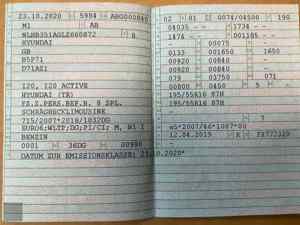 23.10.2020 5984 ABG000840
M1 AB
HYUNDAI
GB
B5P71
D71AZ1
I20, I20 ACTIVE
HYUNDAI (TR)
FZ.Z.PERS.BEF.B. 9 SPL.
SCHRÄGHECKLIMOUSINE
715/2007*2018/1832DG
EURO6;WLTP;DG;PI/CI; M, N1 I
BENZIN
0001 36DG 00998
DATUM ZUR EMISSIONSKLASSE: 23.10.2020*
02 01 0074/04500 190
04035 1734
1474
00075
0133 001650 1650
00920 00840
00920 00840
079 03750 071
00800 0450 5
195/55R16 87H
195/55R16 87H
12.04.2019 K